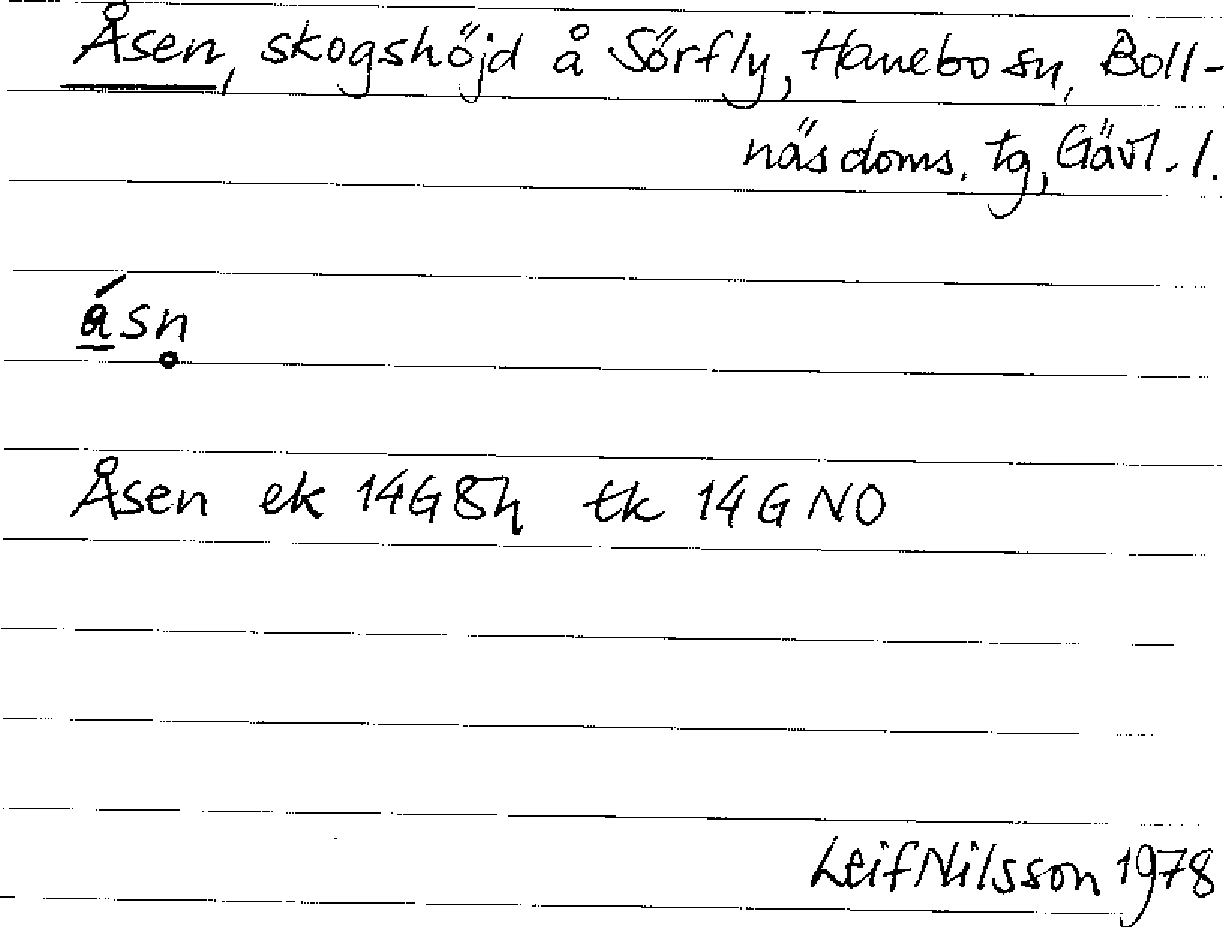 Åsen, skogshöjd å Sörfly, Hanebo sn, Boll-
näs doms. tg, Gävl. l.
ásn̥
Åsen ek 14G8h tk 14G NO
Leif Nilsson 1978